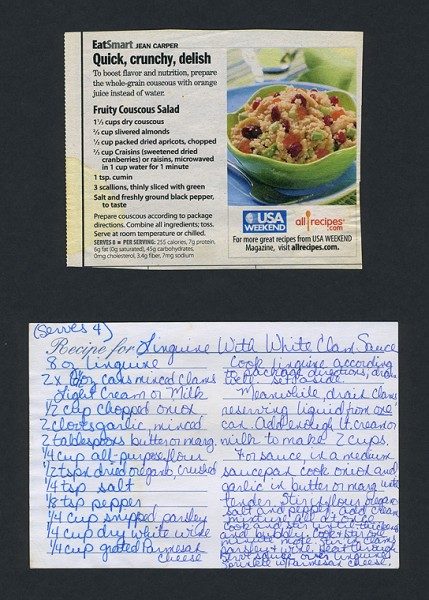 EatSmart JEAN CARPER
Quick, crunchy, delish
To boost flavor and nutrition, prepare
the whole-grain couscous with orange
juice instead of water.
Fruity Couscous Salad
1½ cups dry couscous
½ cup slivered almonds
½ cup packed dried apricots, chopped
½ cup Craisins (sweetened dried
cranberries) or raisins, microwaved
in 1 cup water for 1 minute
1 tsp. cumin
3 scallions, thinly sliced with green
Salt and freshly ground black pepper,
to taste
Prepare couscous according to package
directions. Combine all ingredients; toss.
Serve at room temperature or chilled.
SERVES 8 ■ PER SERVING: 255 calories, 7g protein,
6g fat (0g saturated), 45g carbohydrates,
0mg cholesterol, 3.4g fiber, 7mg sodium
USA
WEEKEND
allrecipes
.com
For more great recipes from USA WEEKEND
Magazine, visit allrecipes.com.
(Serves 4)
Recipe for Linguine With White Clam Sauce
8 oz linguine
2 x oz cans minced clams
Light Cream or Milk
1/2 cup chopped onion
2 cloves garlic, minced
2 tablespoons butter or marg.
1/4 cup all-purpose flour
1/2 tspn dried oregano, crushed
1/4 tsp salt
1/8 tsp pepper
1/4 cup snipped parsley
1/4 cup dry white wine
1/4 cup grated Parmesan
cheese
Cook linguine according
to package directions, drain
well. Set aside.
Meanwhile, drain clams
reserving liquid from one
can. Add enough lt. cream or
milk to make 2 cups.
For sauce, in a medium
saucepan cook onion and
garlic in butter or marg until
tender. Stir in flour oregano
salt and pepper. add cream
mixture all at once.
Cook and stir until thickened
and bubbly. Cook & stir one
minute more. Stir in clams
parsley & wine. Heat through
Serve sauce over linguine
Sprinkle w/Parmesan cheese.